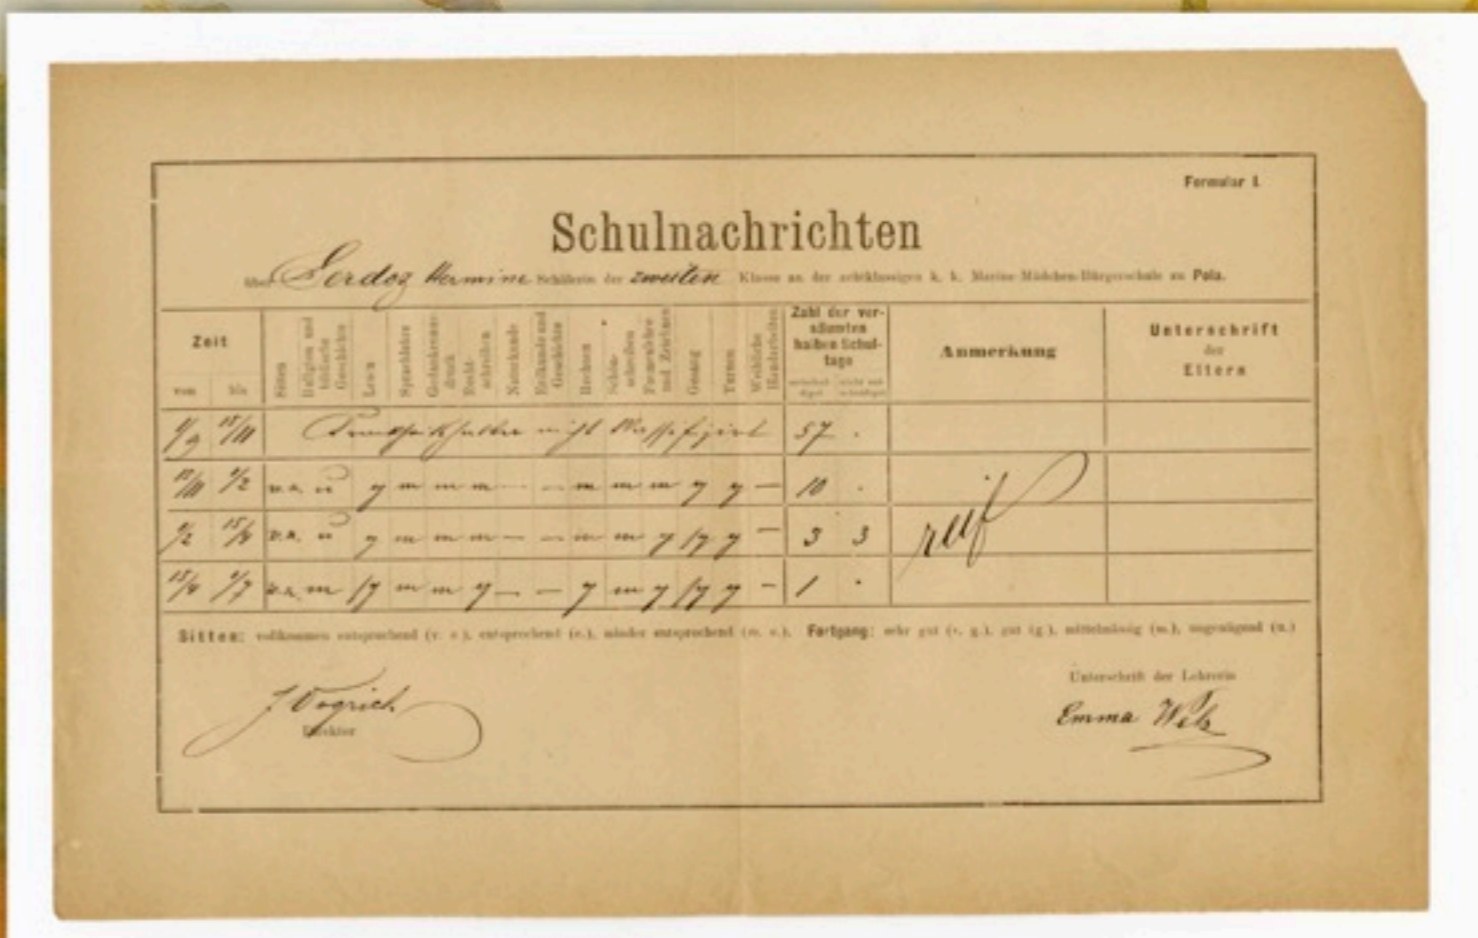 Formular I.
Schulnachrichten
über Hermine Schülerin der zweiten Klasse an der achtklassigen k. k. Marine-Mädchen-Bürgerschule zu Pola.
Zeit
vom bis
Sitten
Religion und biblische Geschichte
Lesen
Sprachlehre
Gedankenausdruck
Rechtschreiben
Naturkunde
Erdkunde und Geschichte
Rechnen
Schönschreiben
Formenlehre und Zeichnen
Gesang
Turnen
Weibliche Handarbeiten
Zahl der ver-
säumten
halben Schul-
tage
entschuldigt nicht entschuldigt
Anmerkung
Unterschrift
der
Eltern
1/9 15/11 Krankheitshalber nicht klassifiziert 57 .
15/11 1/2 v.e. u g m m m — — m m m g g — 10 .
1/2 15/4 v.e. u g m m m — — m m g lg g — 3 3
reif
15/4 1/7 v.e. m lg m m g — — g m g lg g — 1 .
Sitten: vollkommen entsprechend (v. e.), entsprechend (e.), minder entsprechend (m. e.). Fortgang: sehr gut (s. g.), gut (g.), mittelmässig (m.), ungenügend (u.)
Unterschrift der Lehrerin
J Vogrich
Direktor
Emma